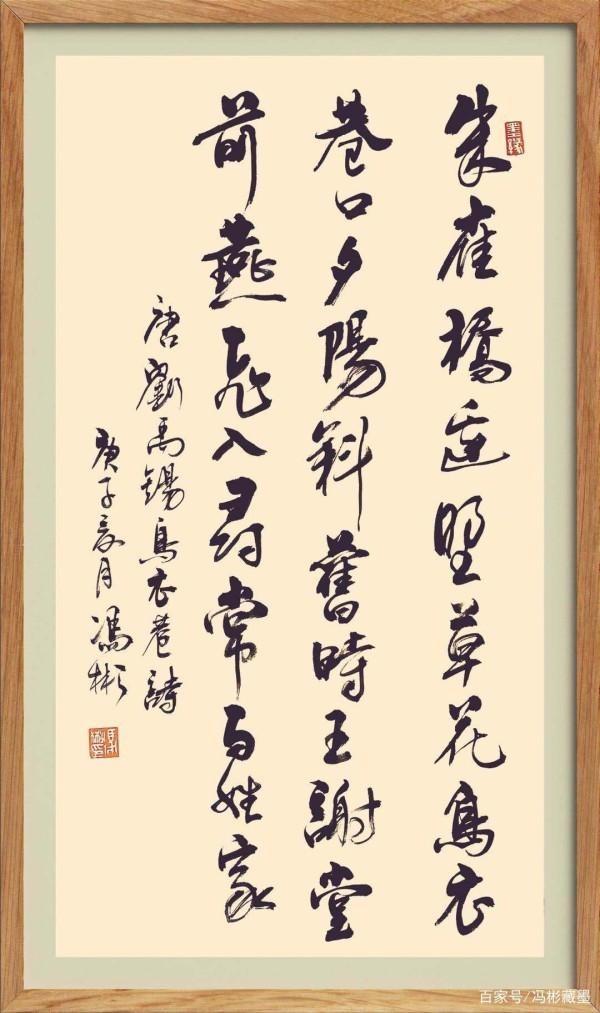 朱雀橋邊野草花烏衣
巷口夕陽斜舊時王謝堂
前燕飛入尋常百姓家
唐劉禹錫烏衣巷詩
庚子夏月馮彬
百家号/冯彬藏墨